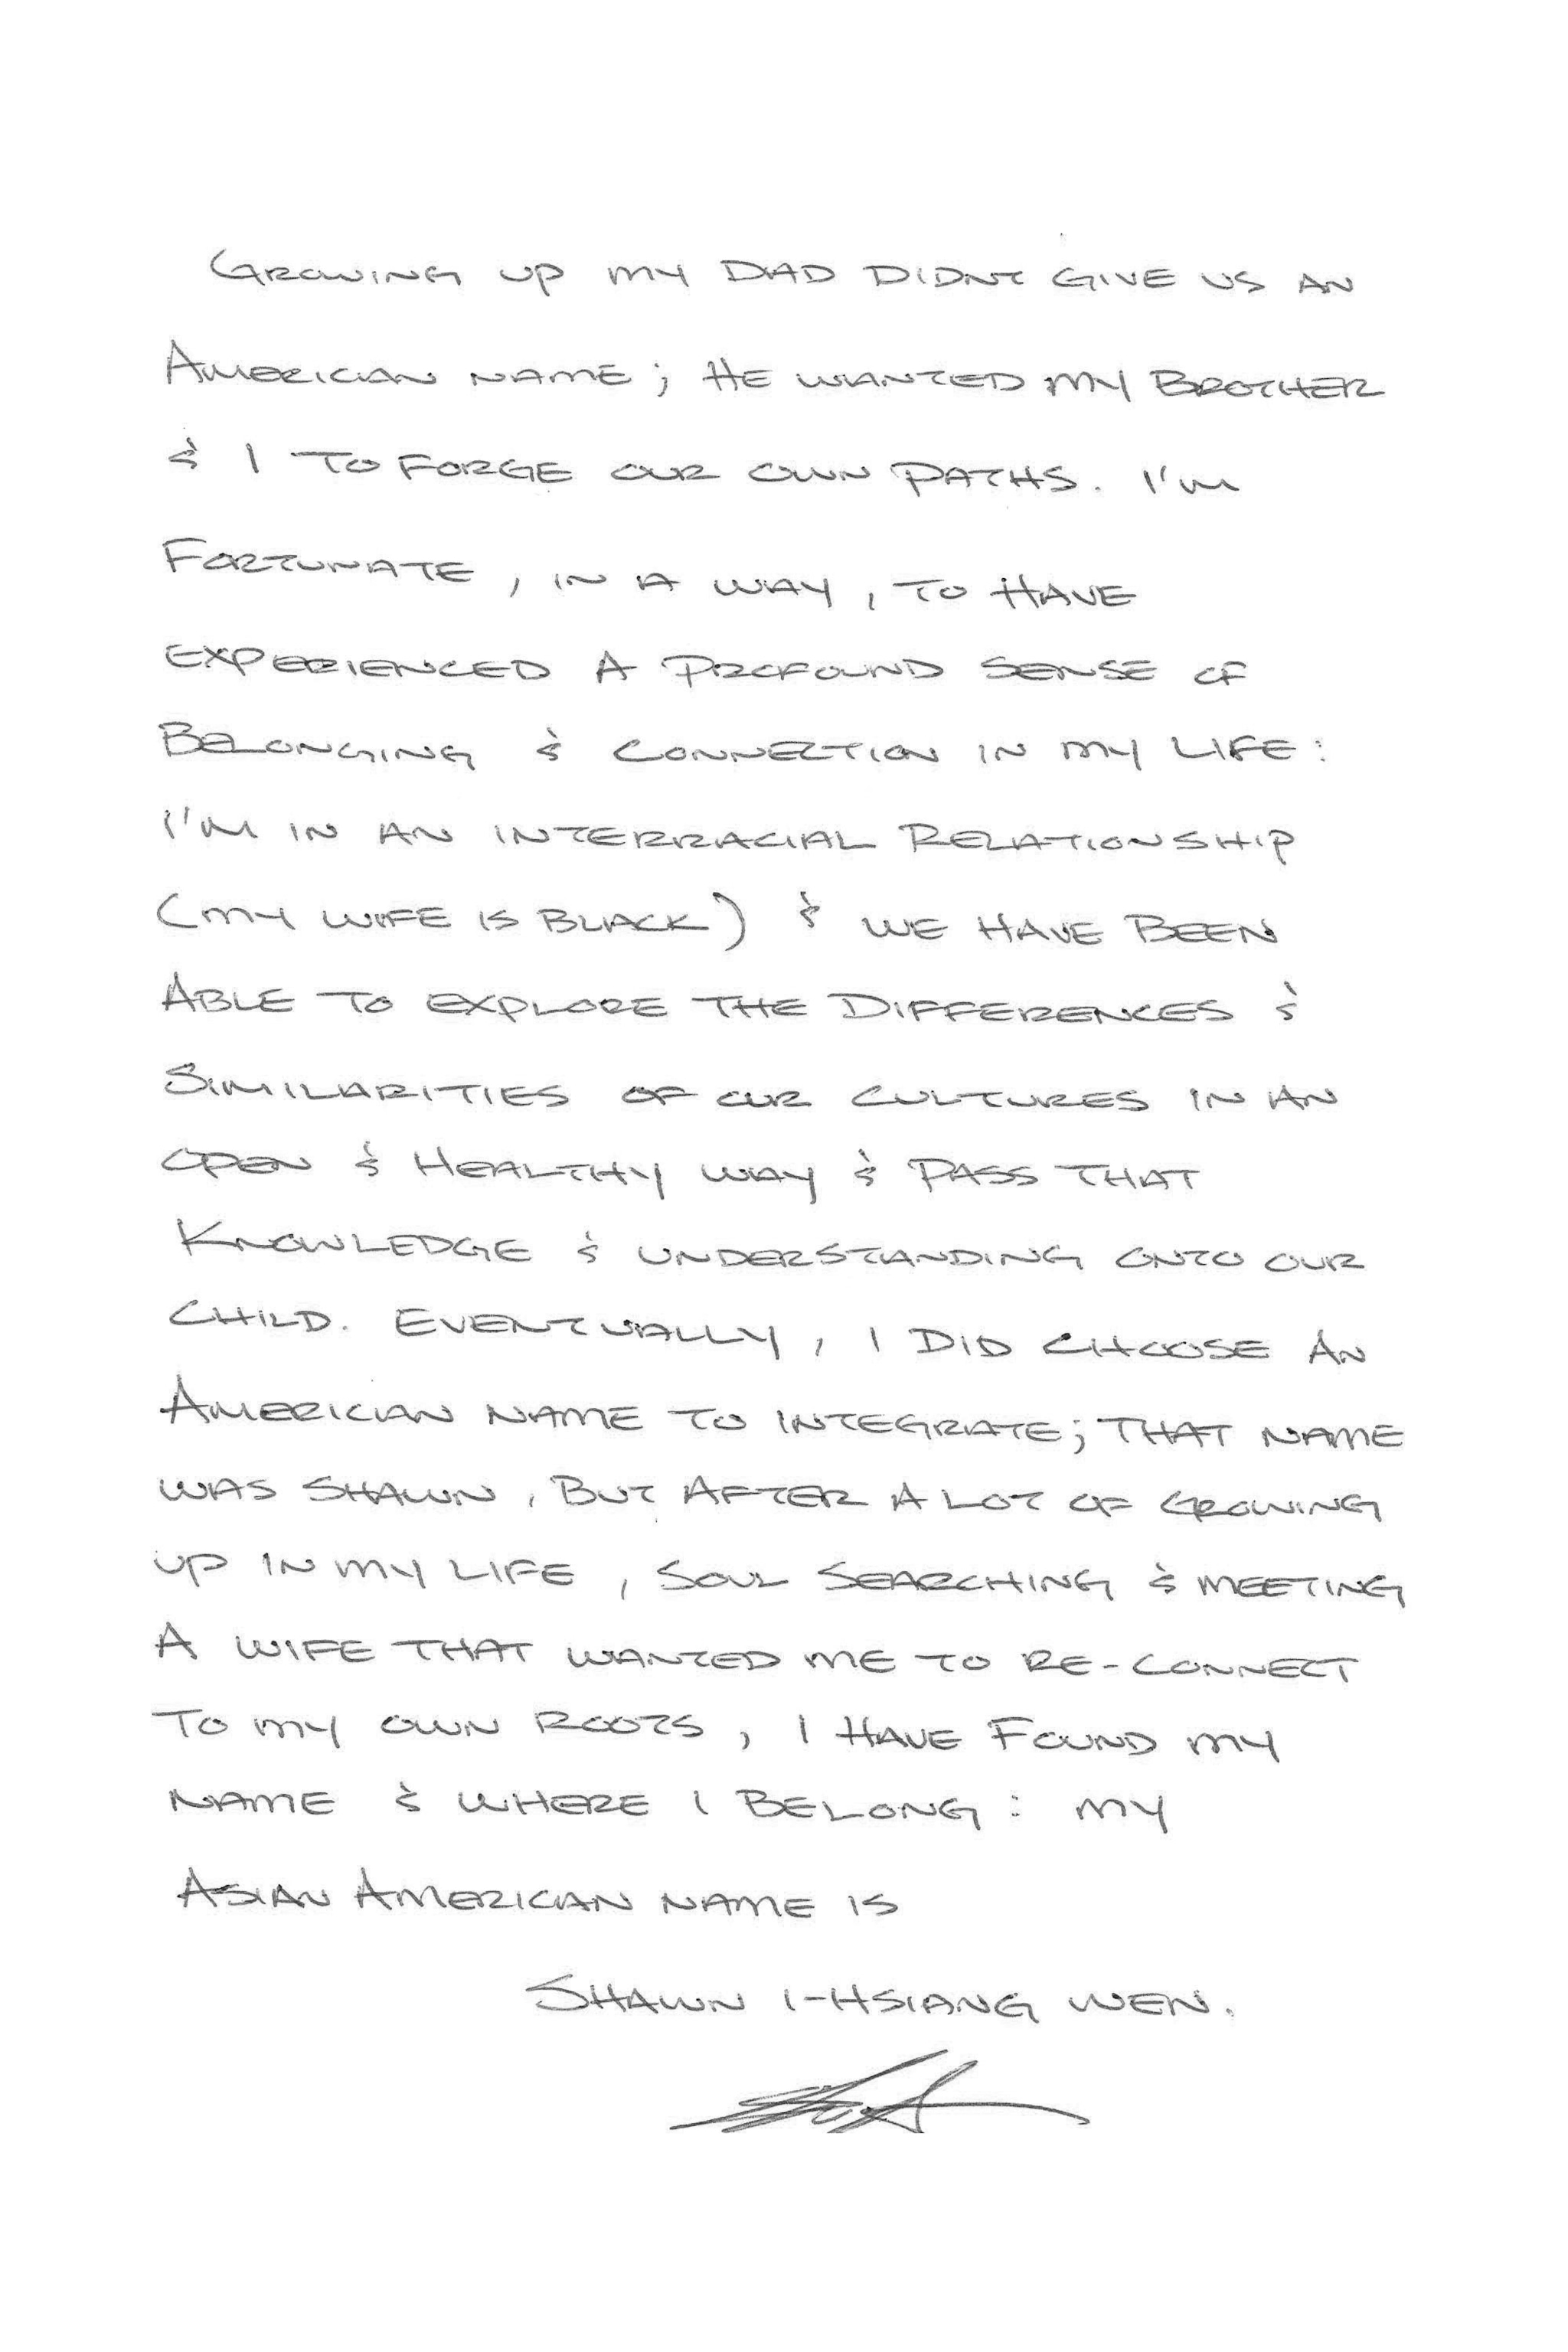 GROWING UP MY DAD DIDNT GIVE US AN
AMERICAN NAME; HE WANTED MY BROTHER
& I TO FORGE OUR OWN PATHS. I'M
FORTUNATE, IN A WAY, TO HAVE
EXPERIENCED A PROFOUND SENSE OF
BELONGING & CONNECTION IN MY LIFE:
I'M IN AN INTERRACIAL RELATIONSHIP
(MY WIFE IS BLACK) & WE HAVE BEEN
ABLE TO EXPLORE THE DIFFERENCES &
SIMILARITIES OF OUR CULTURES IN AN
OPEN & HEALTHY WAY & PASS THAT
KNOWLEDGE & UNDERSTANDING ONTO OUR
CHILD. EVENTUALLY, I DID CHOOSE AN
AMERICAN NAME TO INTEGRATE; THAT NAME
WAS SHAWN, BUT AFTER A LOT OF GROWING
UP IN MY LIFE, SOUL SEARCHING & MEETING
A WIFE THAT WANTED ME TO RE-CONNECT
TO MY OWN ROOTS, I HAVE FOUND MY
NAME & WHERE I BELONG: MY
ASIAN AMERICAN NAME IS
SHAWN I-HSIANG WEN.